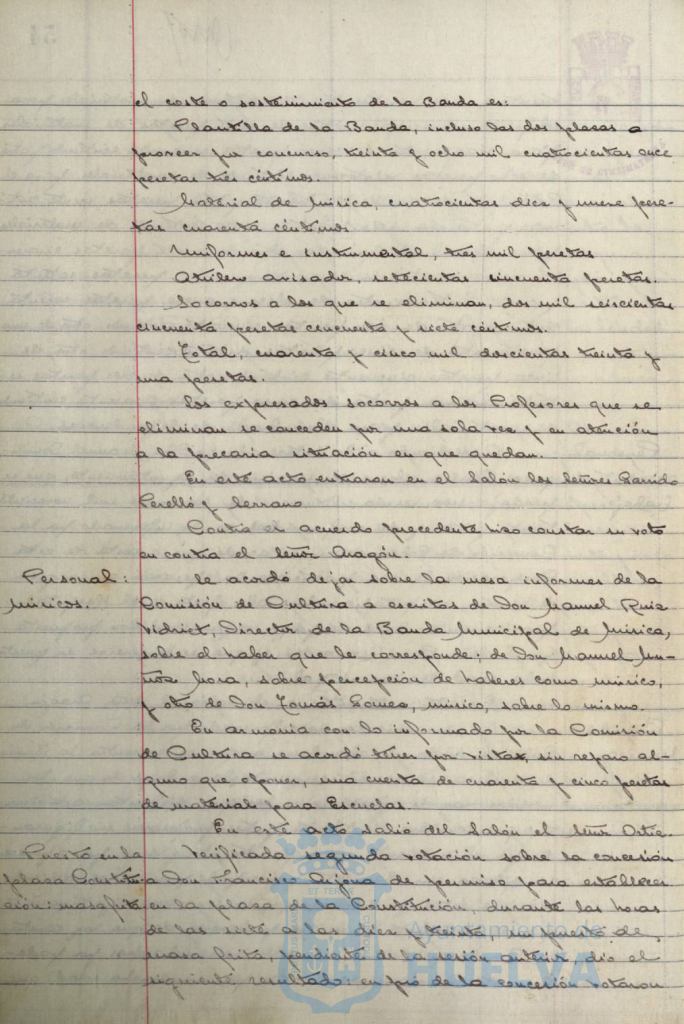 el coste o sostenimiento de la Banda es:
Plantilla de la Banda, incluso las dos plazas a
proveer por concurso, treinta y ocho mil cuatrocientas once
pesetas tres céntimos.
Material de música, cuatrocientas diez y nueve pese-
tas cuarenta céntimos
Uniformes e instrumental, tres mil pesetas
Atrilero avisador, setecientas cincuenta pesetas.
Socorros a los que se eliminan, dos mil seiscientas
cincuenta pesetas cincuenta y siete céntimos.
Total, cuarenta y cinco mil doscientas treinta y
una pesetas.
Los expresados socorros a los Profesores que se
eliminan se conceden por una sola vez y en atención
a la precaria situación en que quedan.
En este acto entraron en el Salón los Señores Garrido
Perelló y Serrano
Contra el acuerdo precedente hizo constar su voto
en contra el Señor Aragón.
Personal:
músicos.
Se acordó dejar sobre la mesa informes de la
Comisión de Cultura a escritos de Don Manuel Ruiz
Vidriet, Director de la Banda Municipal de Música,
sobre el haber que le corresponde; de Don Manuel Mu-
ñoz Mora, sobre percepción de haberes como músico,
y otro de Don Tomás Gomez, músico, sobre lo mismo.
En armonía con lo informado por la Comisión
de Cultura se acordó tener por vista, sin reparo al-
guno que oponer, una cuenta de cuarenta y cinco pesetas
de material para Escuelas.
En este acto salió del Salón el Señor Ortiz.
Puesto en la
plaza Constitu-
ción: masa frita
Verificada segunda votación sobre la concesión
a Don Francisco Arjona de permiso para establecer
en la plaza de la Constitución, durante las horas
de las siete a las diez y treinta, un puesto de
masa frita, pendiente de la sesión anterior, dio el
siguiente resultado: en pró de la concesión votaron
Ayuntamiento de
HUELVA